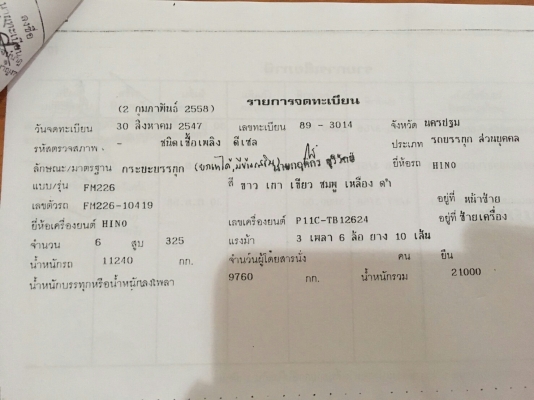 ลงชื่อ
รายการจดทะเบียน
(2 กุมภาพันธ์ 2558)
วันจดทะเบียน 30 สิงหาคม 2547 เลขทะเบียน 89 - 3014 จังหวัด นครปฐม
รหัสตรวจสภาพ . - ชนิดเชื้อเพลิง ดีเซล ประเภท รถบรรทุก ส่วนบุคคล
ลักษณะ/มาตรฐาน กระบะบรรทุก ยี่ห้อรถ HINO
แบบ/รุ่น FM226 สี ขาว เทา เขียว ชมพู เหลือง ดำ
เลขตัวรถ FM226-10419 อยู่ที่ หน้าซ้าย
ยี่ห้อเครื่องยนต์ HINO เลขเครื่องยนต์ P11C-TB12624 อยู่ที่ ซ้ายเครื่อง
จำนวน 6 สูบ 325 แรงม้า 3 เพลา 6 ล้อ ยาง 10 เส้น
น้ำหนักรถ 11240 กก. จำนวนผู้โดยสารนั่ง คน ยืน
น้ำหนักบรรทุกหรือน้ำหนักลงเพลา 9760 กก. น้ำหนักรวม 21000